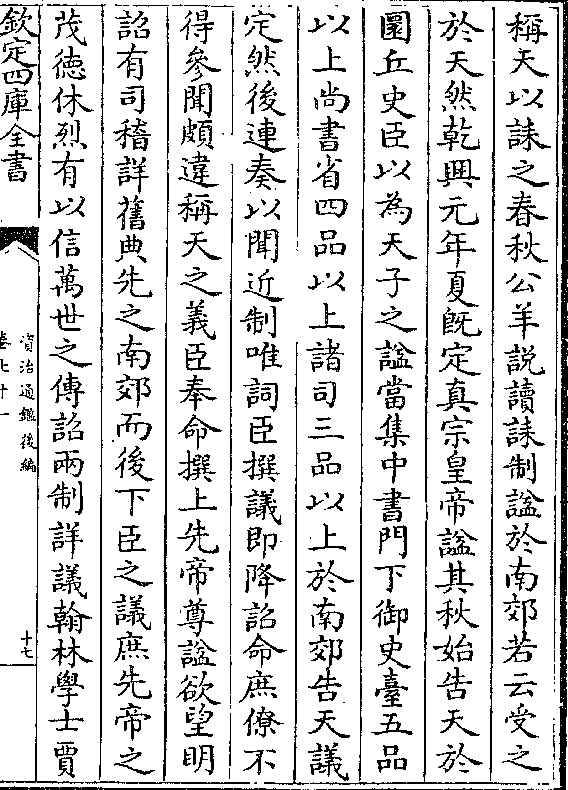 稱天以誄之春秋公羊說讀誄制諡於南郊若云受之
於天然乾興元年夏旣定真宗皇帝諡其秋始告天於
圜丘史臣以為天子之諡當集中書門下御史臺五品
以上尚書省四品以上諸司三品以上於南郊告天議
定然後連奏以聞近制唯詞臣撰議即降詔命庶僚不
得參聞頗違稱天之義臣奉命撰上先帝尊諡欲望明
詔有司稽詳舊典先之南郊而後下臣之議庶先帝之
茂徳休烈有以信萬世之傳詔兩制詳議翰林學士賈
欽定四庫全書
資治通鑑後編
卷七十一
十七